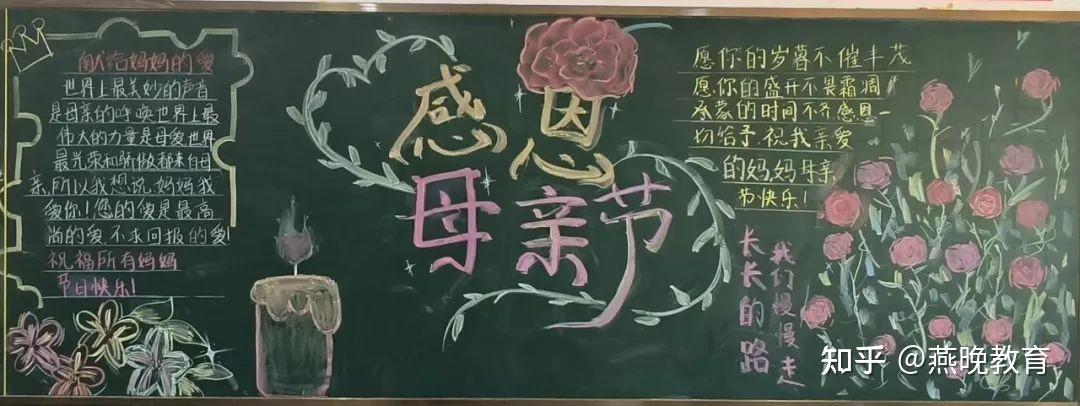 献给妈妈的爱
世界上最美妙的声音
是母亲的呼唤世界上最
伟大的力量是母爱世界
最光荣和骄傲都来自母
亲,所以我想说,妈妈我
爱你!您的爱是最高
尚的爱,不求回报的爱!
祝福所有妈妈
节日快乐!
感恩
母亲节
愿你的岁暮不催丰茂
愿你的盛开不畏霜凋
承蒙的时间不齐感恩一
切给予.祝我亲爱
的妈妈母亲
节快乐!
长长的路
我们慢慢走
知乎 @燕晚教育